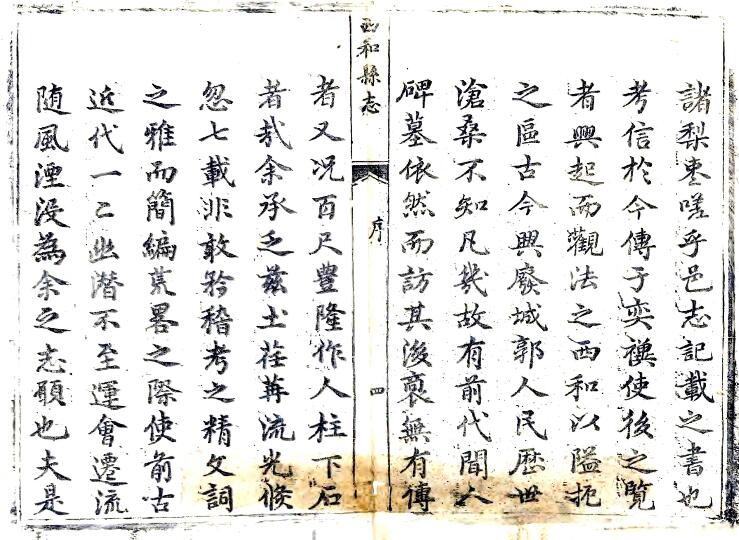 諸梨棗嗟乎邑志記載之書也
考信於今傳于奕禩使後之覽
者興起而觀法之西和以隘扼
之區古今興廢城郭人民歷世
滄桑不知凡幾故有前代聞人
碑墓依然而訪其後裔無有傳
西和縣志
序
四
者又况百尺豐隆作人柱下石
者哉余承乏茲土荏苒流光倏
忽七載非敢矜稽考之精文詞
之雅而簡編荒畧之際使前古
近代一二幽潛不至運會遷流
随風湮没為余之志願也夫是